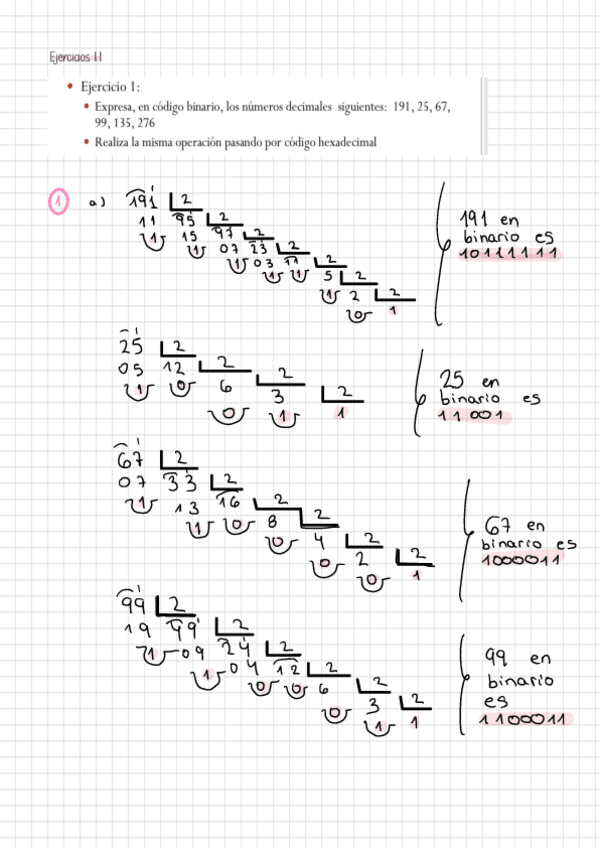 Ejercicios 11
• Ejercicio 1:
• Expresa, en código binario, los números decimales siguientes: 191, 25, 67,
99, 135, 276
• Realiza la misma operación pasando por código hexadecimal
1 a) 191 2
11 95 2
1 15 47 2
1 07 23 2
1 03 11 2
1 1 5 2
1 2 2
0 1
191 en
binario es
10111111
25 2
05 12 2
1 0 6 2
0 3 2
1 1
25 en
binario es
11001
67 2
07 33 2
1 13 16 2
1 0 8 2
0 4 2
0 2 2
0 1
67 en
binario es
1000011
99 2
19 49 2
1 09 24 2
1 04 12 2
0 0 6 2
0 3 2
1 1
99 en
binario
es
1100011